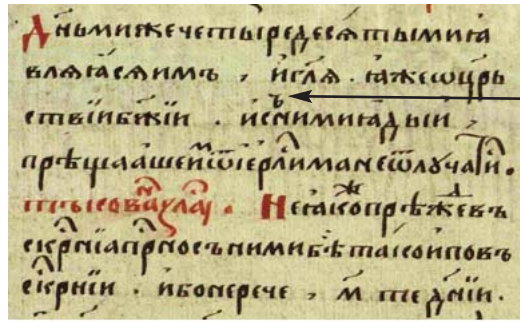 Дн҃ьмижечетыредесѧтьмиꙗ
влѧꙗсѧимъ , игл҃ѧ . ꙗжеѡцр҃ь
ствїиб҃жїи . исънимиꙗдыи ,
прѣщаашеиѿіерⷭ҇лиманеѿлучатиⷭ҇ .
Неꙗкоⷤпрѣжⷣевъ
скрⷭ҇нїапрⷭ҇носънимибѣтакоиповъ
скрⷭ҇нїи . ибонерече , м҃ тедн҃їи .